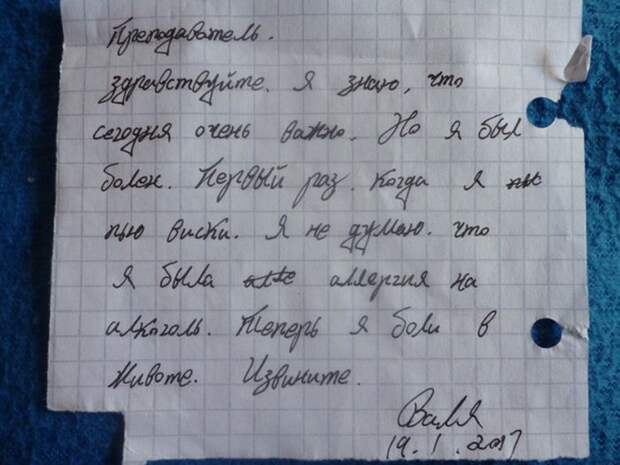 Преподаватель.
здравствуйте. я знаю, что
сегодня очень важно. Но я был
болен. Первый раз. Когда я
пью виски. Я не думаю. что
я была аллергия на
алкоголь. Теперь я боли в
животе. Извините.
Валя
19.1.2017